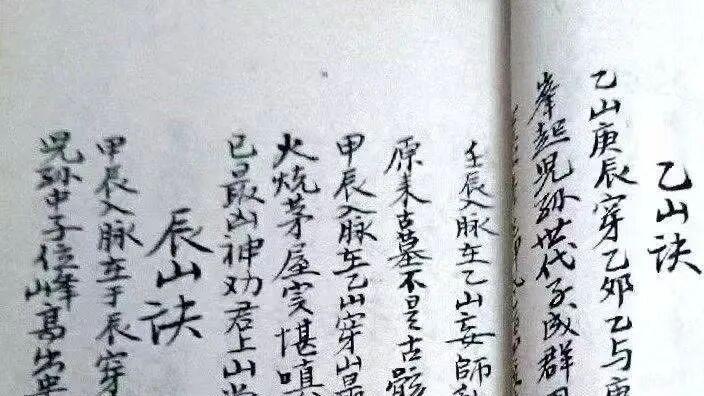 乙山诀
乙山庚辰穿乙卯乙与庚
峯起児孙世代子成群
壬辰入脉在乙山妄師
原来古墓不是古骸
甲辰入脉在乙山穿山最
火烧茅屋实堪嗔
已最凶神劝君上山
辰山诀
甲辰入脉在于辰穿
児孙中子位峰高出